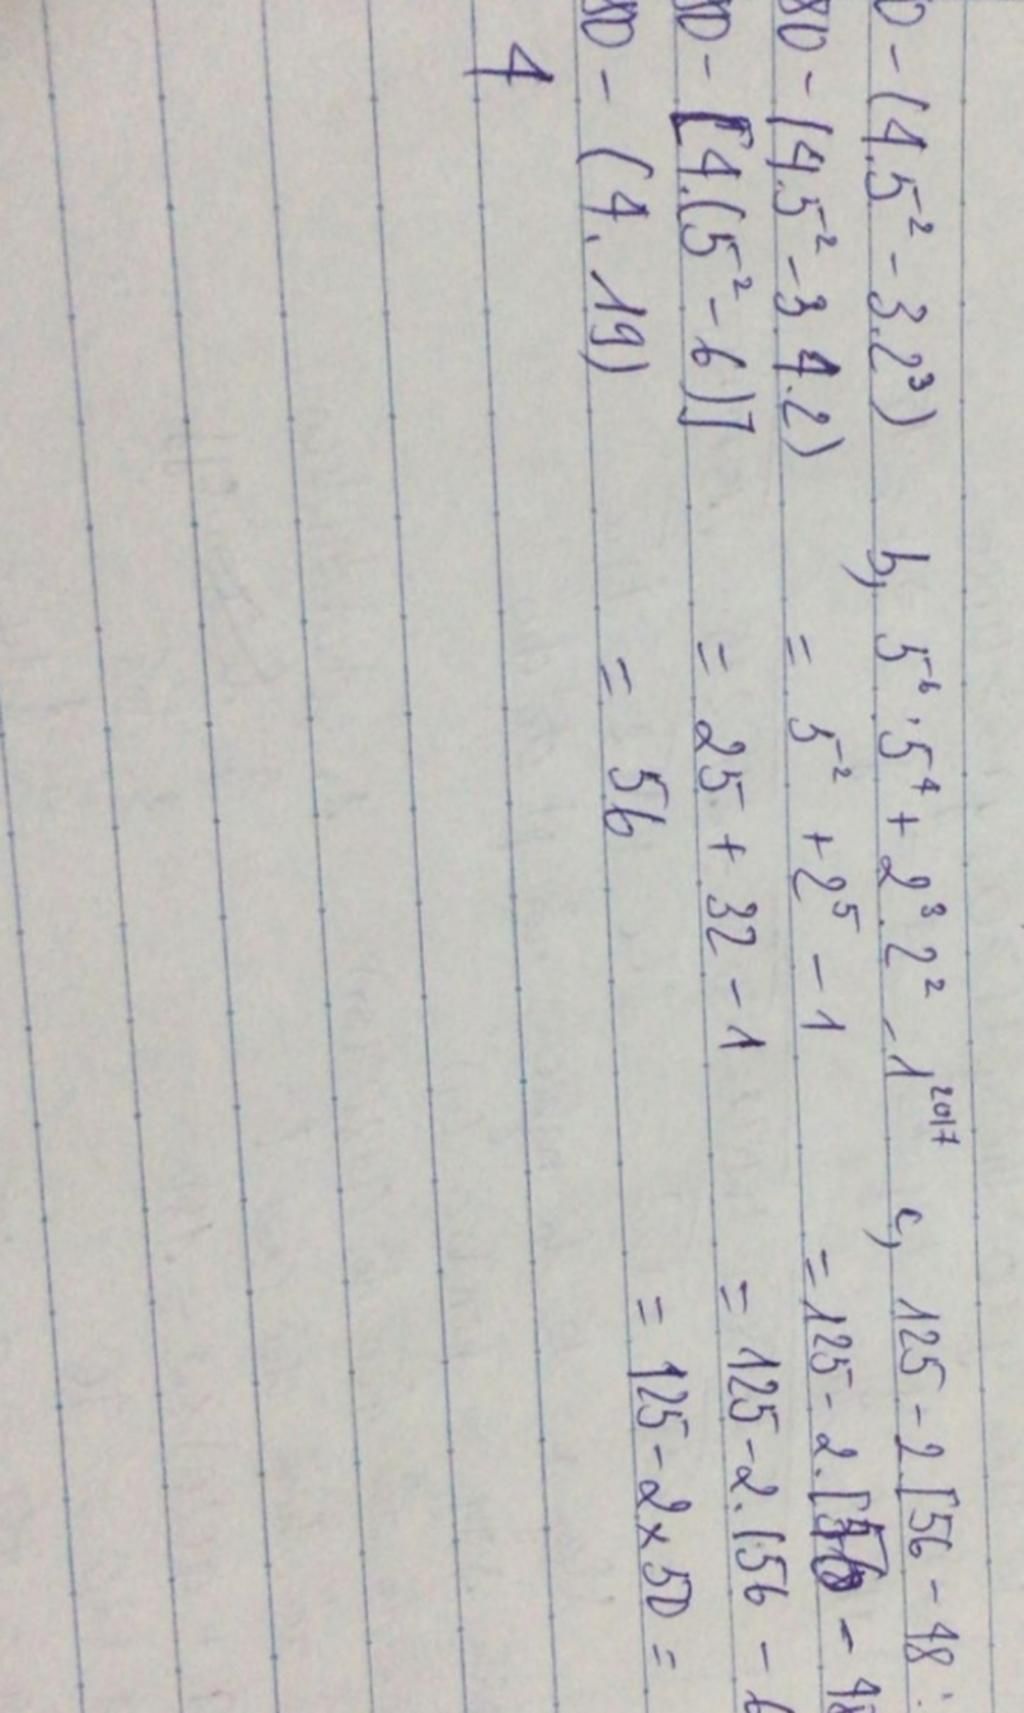 80 - (4.5² - 3.2³)
80 - (4.5² - 3 4.2)
80 - [4.(5² - 6)]
80 - (4.19)
4
b, 5⁶ : 5⁴ + 2³.2² - 1²⁰¹⁷
= 5² + 2⁵ - 1
= 25 + 32 - 1
= 56
c, 125 - 2.[56 - 48 :
= 125 - 2.[56 - 48
= 125 - 2.(56 - 6
= 125 - 2 x 50 =